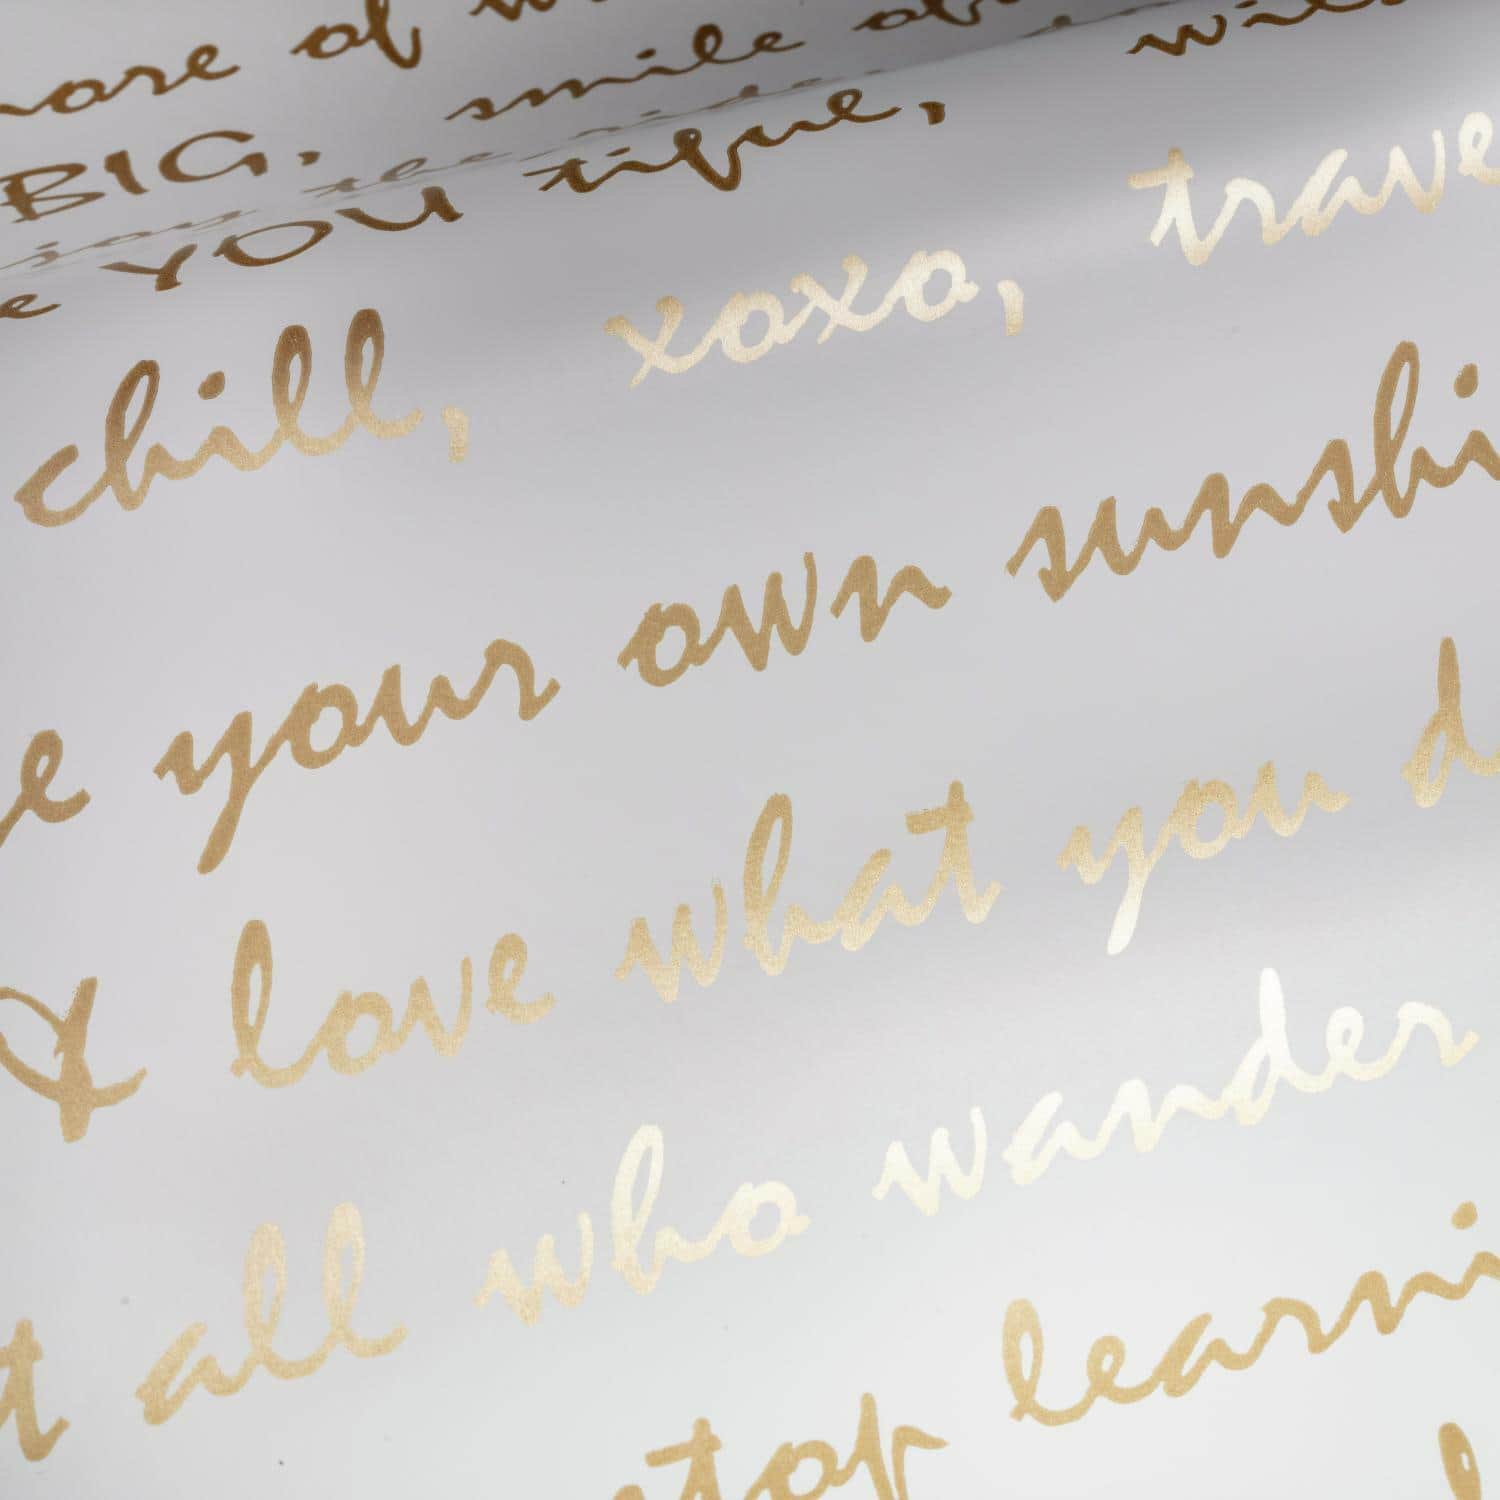 more of
BIG. smile
YOU tique, wil
chill, xoxo, trave
e your own sunshi
& love what you d
t all who wander
stop learni